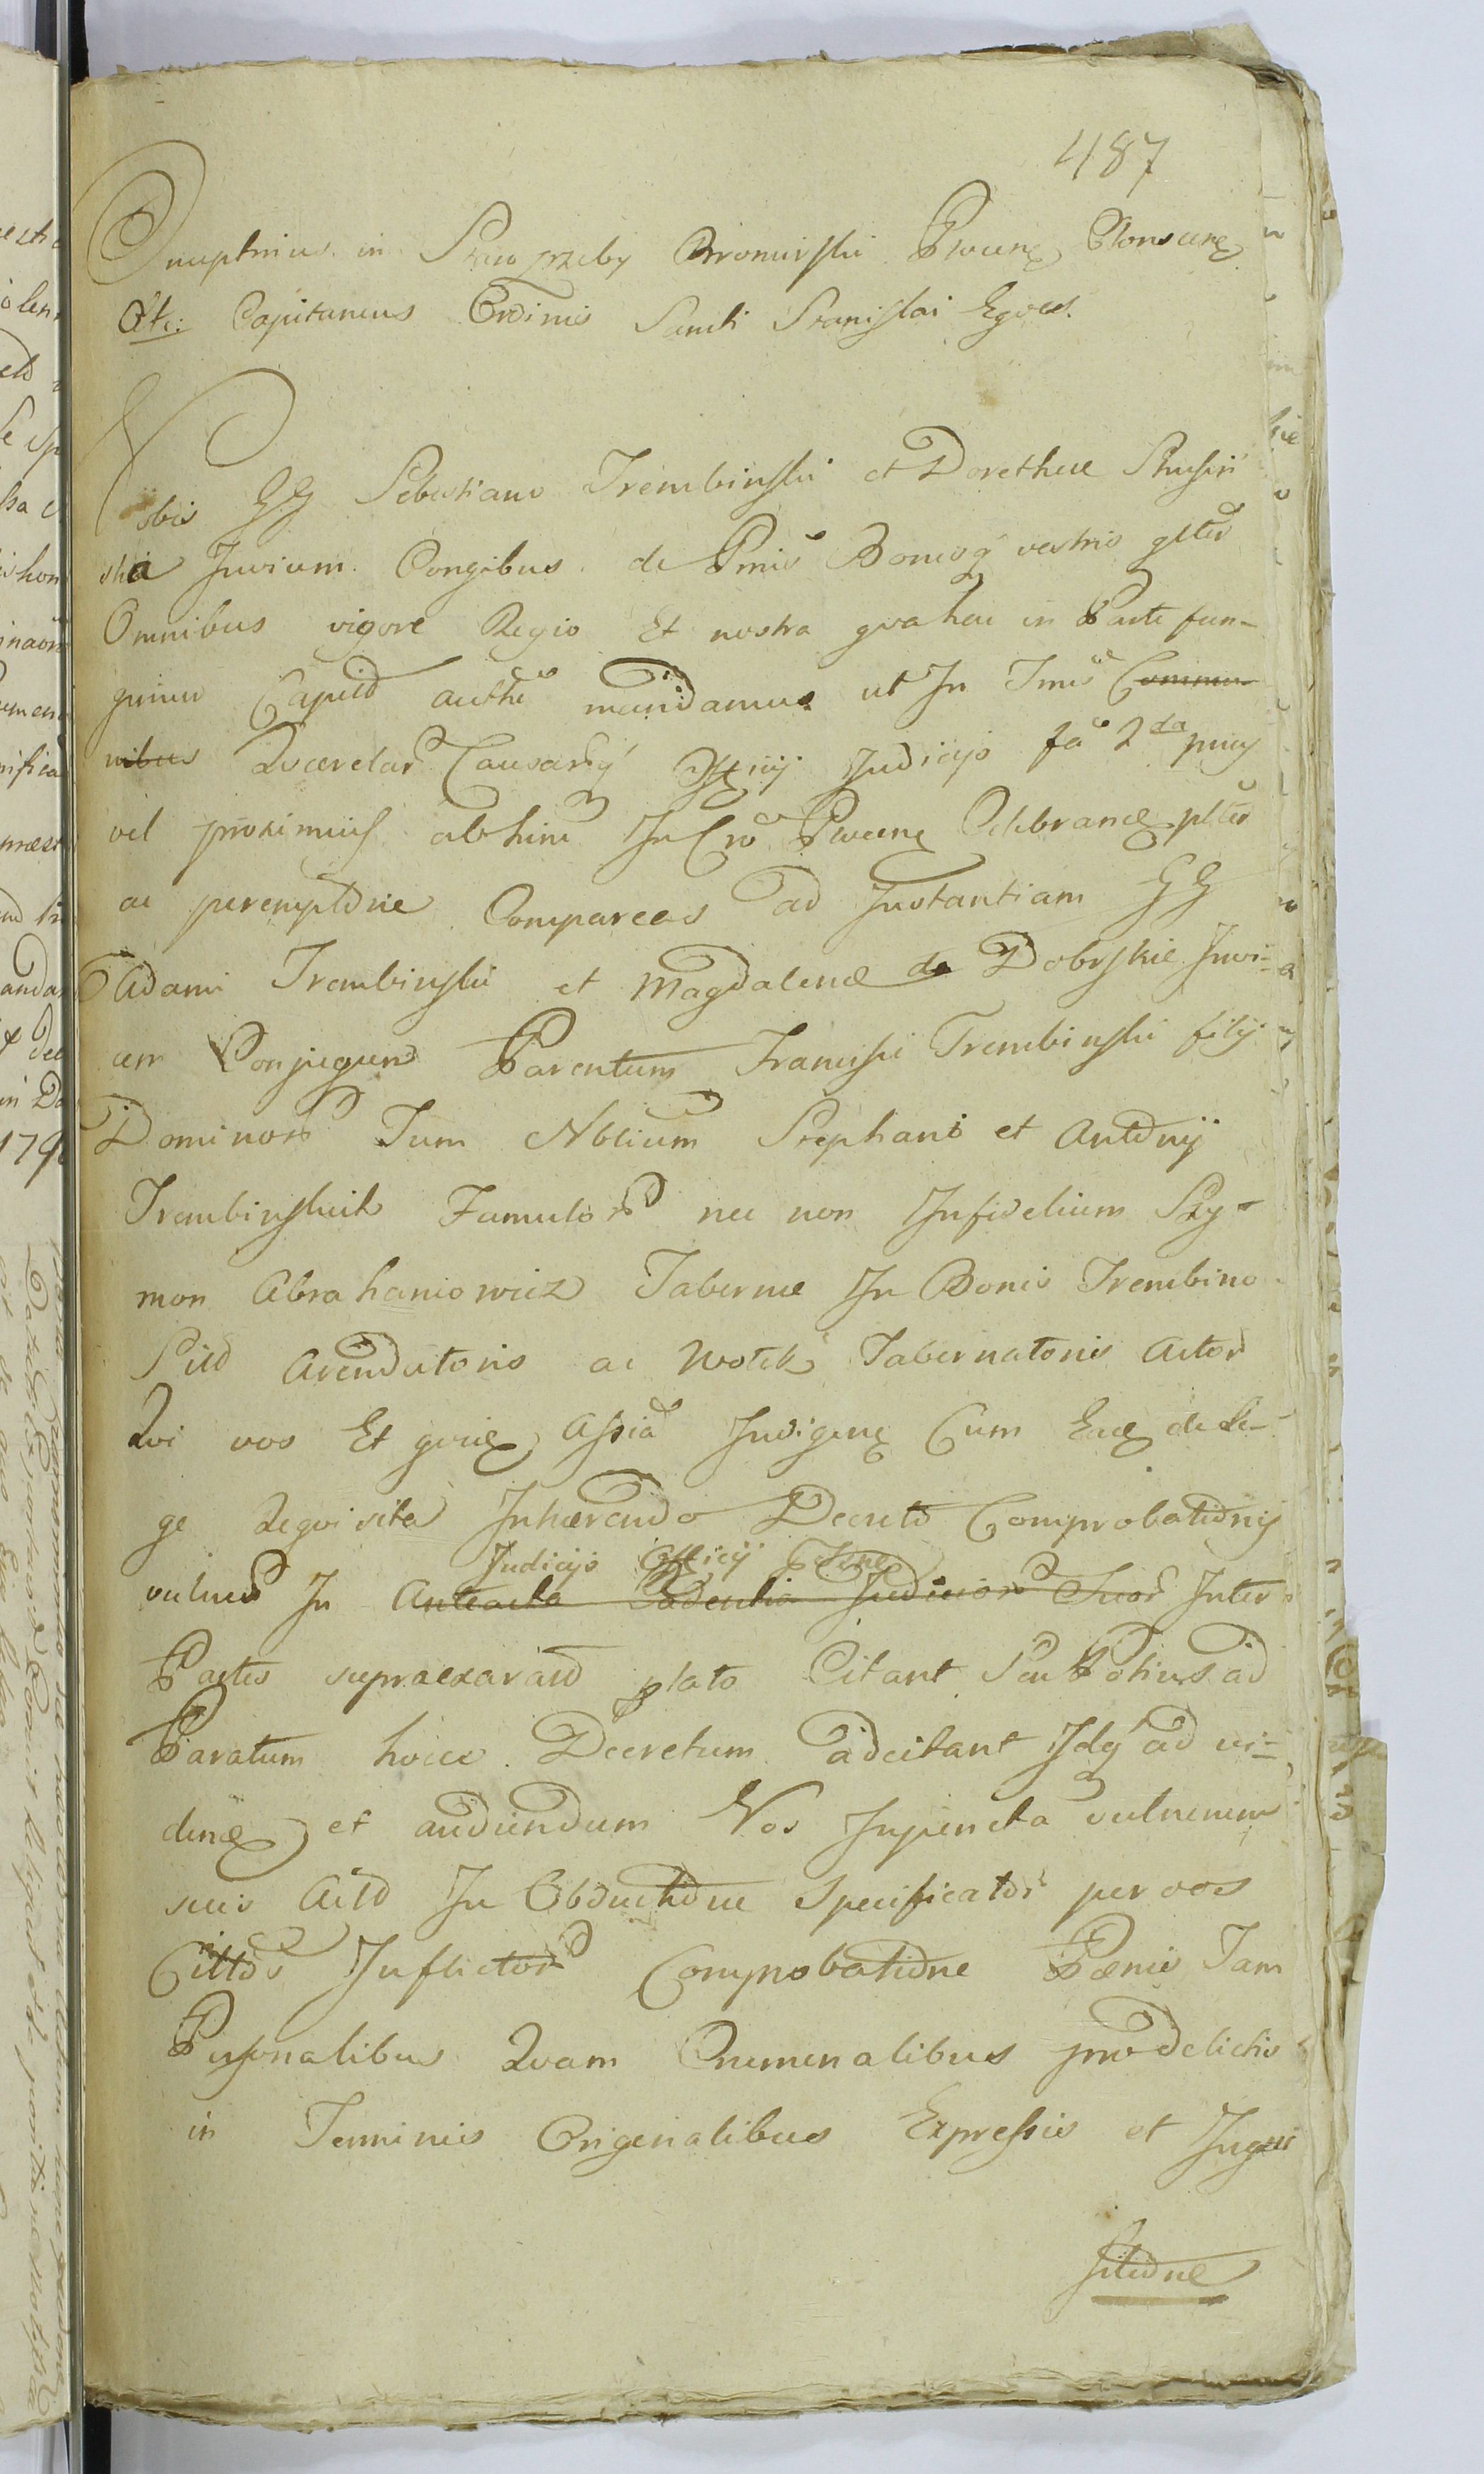 487
Onuphrius in Starozreby Bromirski Plocens Plonscens
Etc: Capitaneus Ordinis Sancti Stanislai Eques.
Vobis GG Sebastiano Trembinski et Dorothea
ska Juvicum Conjibus de Pnis Bonisq vestris gltr
Omnibus vigore Regio Et nostra qua hac in Parte fun-
gimur Capitd authte mandamus ut In Jmis Commu-
nibus Querelar Causarq Officij Judicijs fa 2da
vel proximius abhinc In Cro Plocens Celebrand pltr
ac peremptorie Compareas ad Instantiam GG
Adami Trembinski et Magdalenæ de Dobrskie Juvi-
cem Conjugum Parentum Francisci Trembinski filij
Dominor Tum Nblium Stephani et Antonij
Trembinskich Famulor nec non Infidelium Szy-
mon Abrahamowicz Tabernæ In Bonis Trembino
Sitd Arendatoris ac Wolek Tabernatoris Actor
Qui vos Et Assia Indigen Cum de Le-
ge Requisita Inhærendo Decreto Comprobationis
Judicijs Officij
vulner In Anteacta Cadentia Judicior Suor Inter
Partes supraexarat plato Citant Seu Potius ad
Paratum hocce Decretum adcitant Idq ad vi-
dend et audiendum Vos Inpuncta vulnerum
suis Actd In Obductione Specificator per vos
Cittos Inflictor Comprobatione Pænis Tam
Personalibus Quam Criminalibus pro delictis
in Terminis Originalibus Expressis et Inqui
sitione